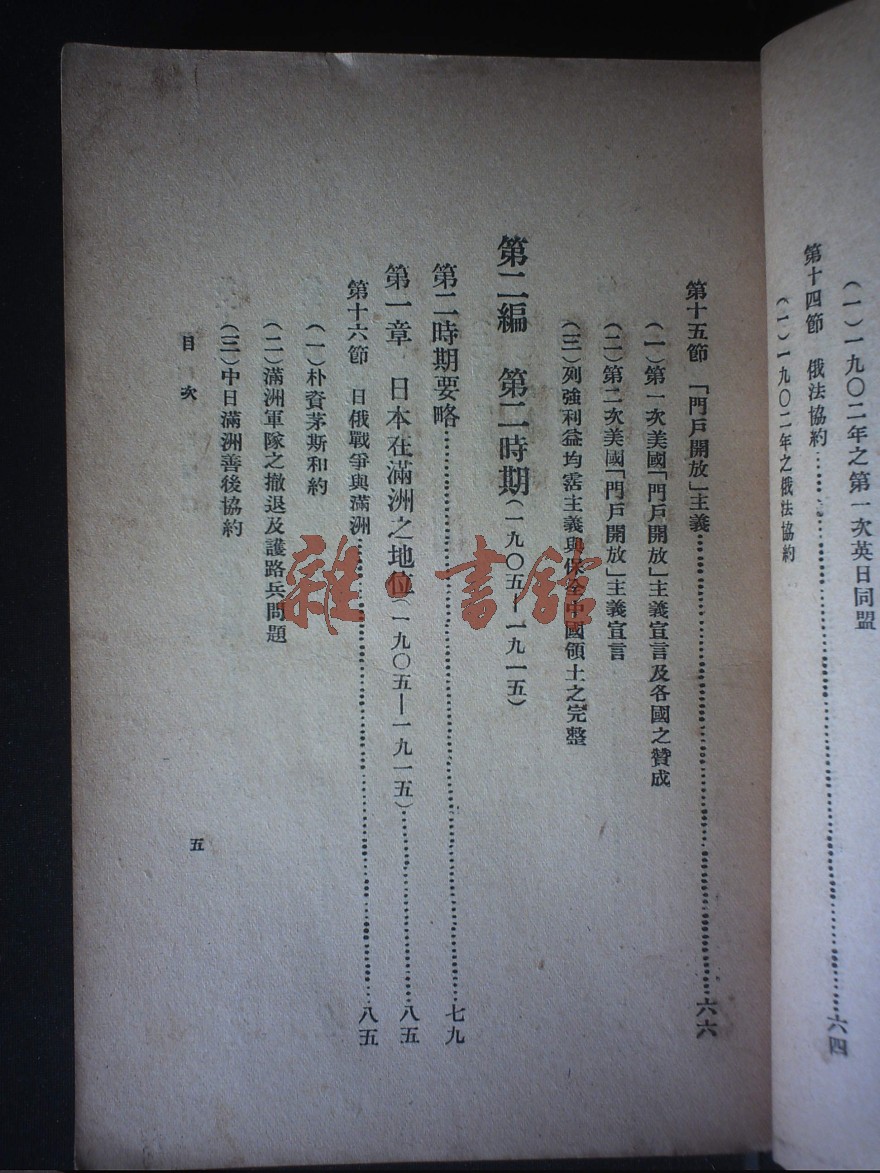 (一)一九〇二年之第一次英日同盟
第十四節 俄法協約……六四
(一)一九〇二年之俄法協約
第十五節 「門戶開放」主義……六六
(一)第一次美國「門戶開放」主義宣言及各國之贊成
(二)第二次美國「門戶開放」主義宣言
(三)列強利益均霑主義與保全中國領土之完整
第二編 第二時期(一九〇五—一九一五)
第二時期要略……七九
第一章 日本在滿洲之地位(一九〇五—一九一五)……八五
第十六節 日俄戰爭與滿洲……八五
(一)朴資茅斯和約
(二)滿洲軍隊之撤退及護路兵問題
(三)中日滿洲善後協約
目次
五
雜·書館